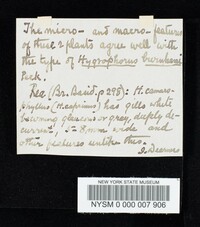 The micro- and macro-features
of these 2 plants agree well with
the type of Hygrophorus burnhami
Peck.
Rea (Br. Basid. p 298): H. camaro-
phyllus (H. caprinus) has gills white
becoming glaucous or gray, deeply de-
current, 5-8 mm wide and
other features unlike these.
J. Dearness
NEW YORK STATE MUSEUM
NYSM 0 000 007 906